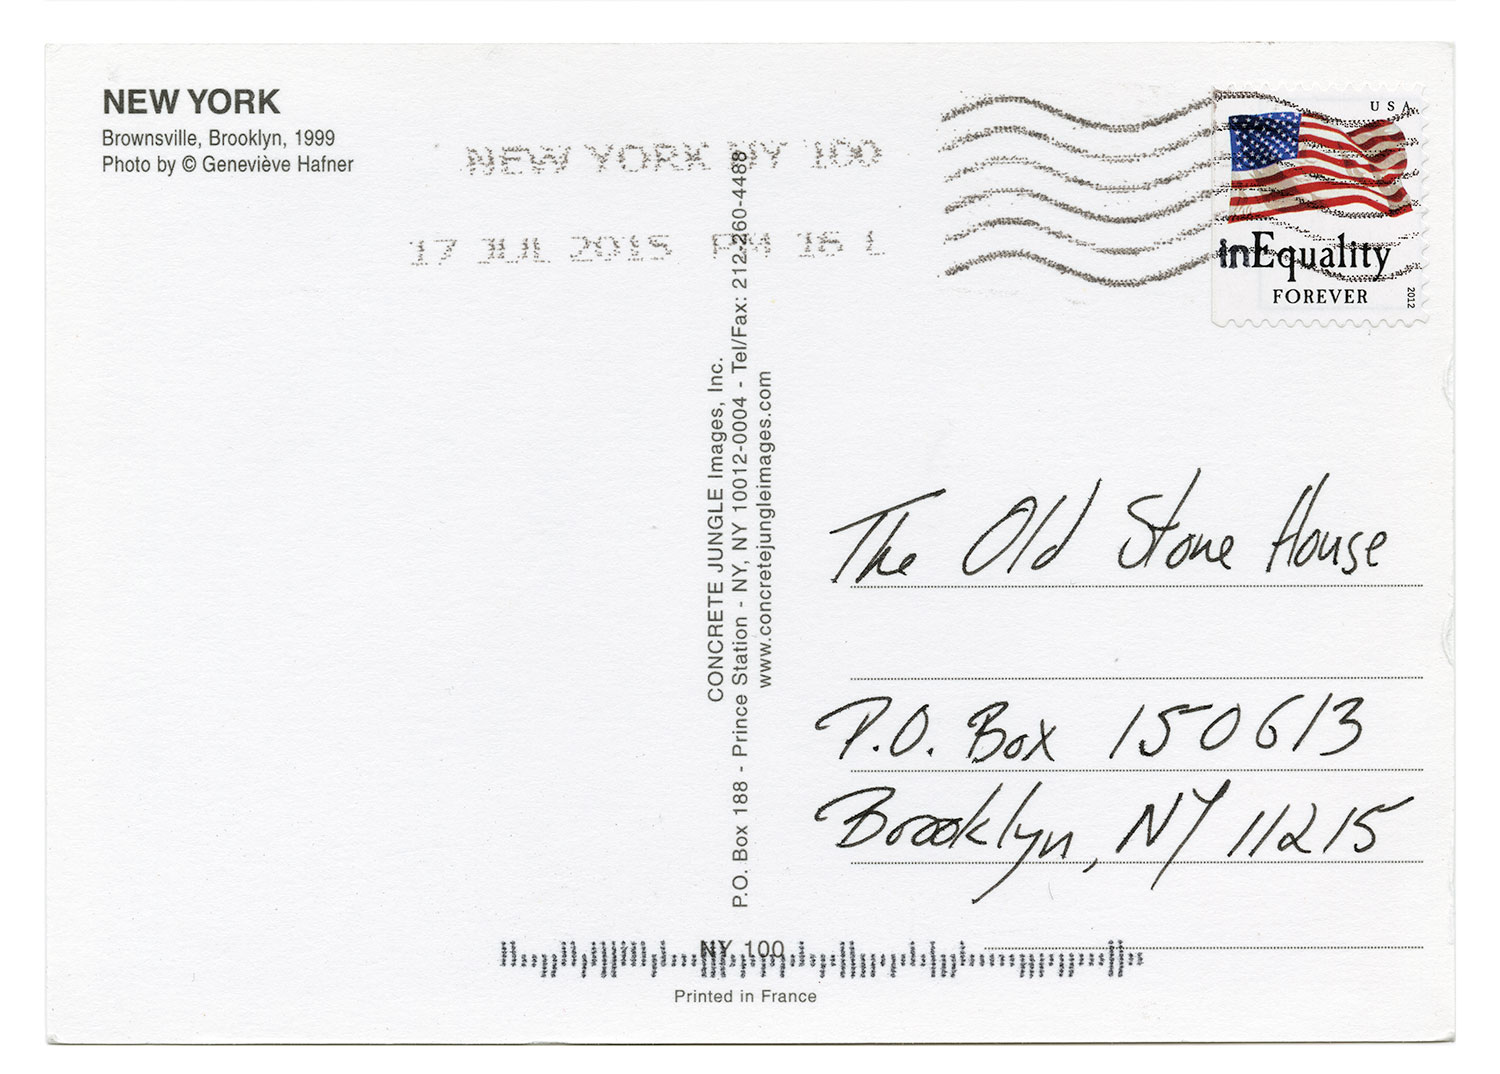 NEW YORK
Brownsville, Brooklyn, 1999
Photo by © Geneviève Hafner
NEW YORK NY 100
17 JUL 2015 PM 16 L
USA
inEquality
FOREVER
2012
CONCRETE JUNGLE Images, Inc.
P.O. Box 188 - Prince Station - NY, NY 10012-0004 - Tel/Fax: 212-260-4488
www.concretejungleimages.com
The Old Stone House
P.O. Box 150613
Brooklyn, NY 11215
NY 100
Printed in France